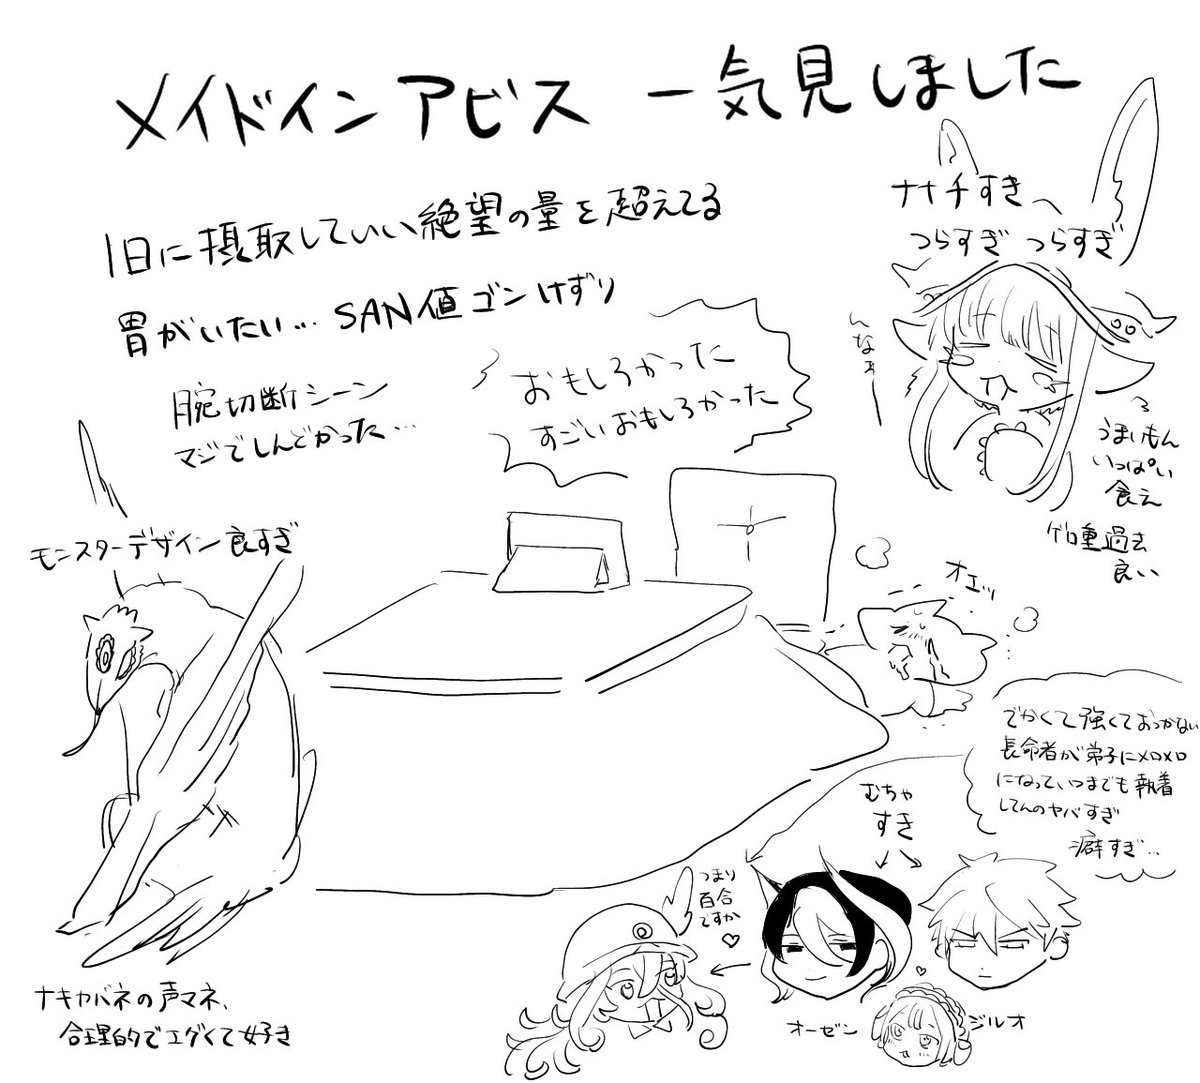 メイドインアビス 一気見しました
1日に摂取していい絶望の量を超えてる
胃がいたい… SAN値ゴンけずり
腕切断シーン
マジでしんどかった…
おもしろかった
すごいおもしろかった
ナナチすき
つらすぎ つらすぎ
んなぁー
うまいもん
いっぱい
食え
ゲロ重過去
良い
モンスターデザイン良すぎ
オエッ
でかくて強くておっかない
長命者が弟子にメロメロ
になっていつまでも執着
してんのヤバすぎ
癖すぎ…
むちゃ
すき
つまり
百合
ですか
オーゼン
ジルオ
ナキカバネの声マネ、
合理的でエグくて好き